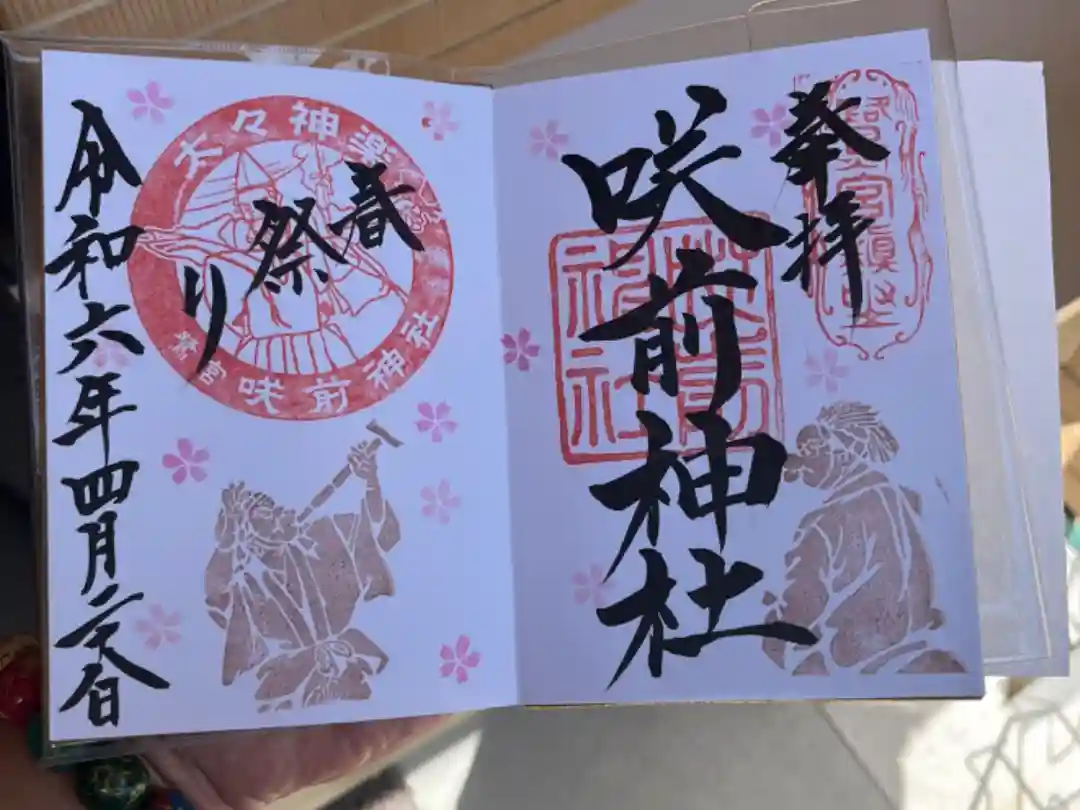 奉拝
咲前神社
春
祭
り
令和六年四月
太々神楽
鷺宮 咲前神社